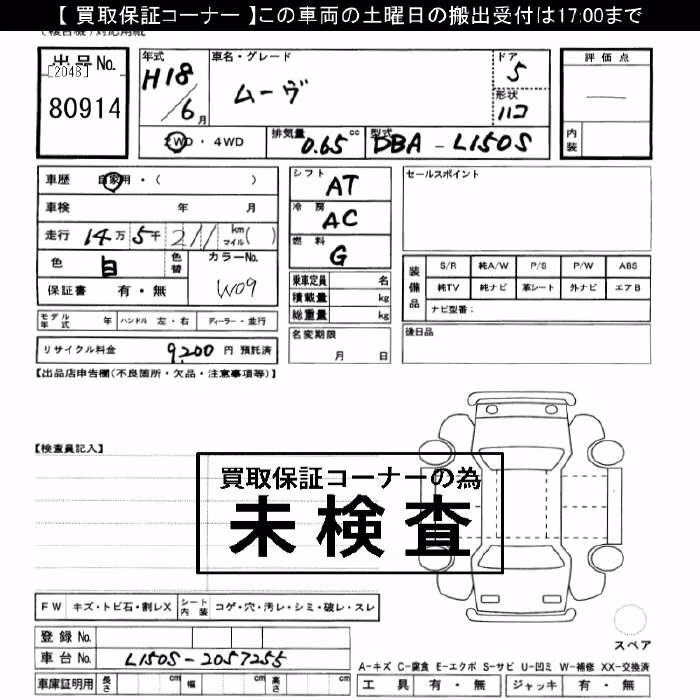 【 買取保証コーナー 】この車両の土曜日の搬出受付は17:00まで
出品No.
[2048]
80914
年式
H18/6月
車名・グレード
ムーヴ
ドア
5
形状
ハコ
評価点
内装
2WD・4WD
排気量 0.65 cc
型式 DBA - L150S
車歴 自家用・( )
車検 年 月
走行 14万 5千 211 km マイル( )
色 白
色替
カラーNo.
W09
保証書 有・無
シフト
AT
冷房
AC
燃料
G
乗車定員 名
積載量 kg
総重量 kg
セールスポイント
装備品
S/R 純A/W P/S P/W ABS
純TV 純ナビ 革シート 外ナビ エアB
ナビ型番:
モデル年式 年 ハンドル 左・右 ディーラー・並行
リサイクル料金 9,200 円 預託済
名変期限
月 日
後日品
【出品店申告欄(不良箇所・欠品・注意事項等)】
【検査員記入】
買取保証コーナーの為
未検査
FW キズ・トビ石・割レX シート内装 コゲ・穴・汚レ・シミ・破レ・スレ
登録No.
車台No. L150S-2057255
車庫証明用 長さ cm 幅 cm 高さ cm
スペア
A-キズ C-腐食 E-エクボ S-サビ U-凹ミ W-補修 XX-交換済
工具 有・無 ジャッキ 有・無